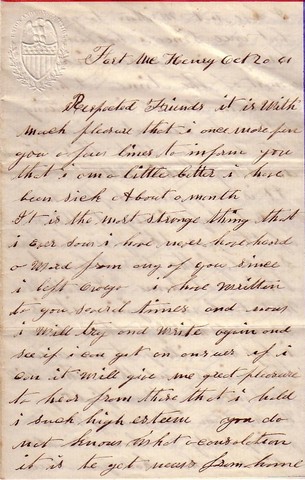 Fort Mc Henry Oct 20 61
Respected Friends it is With
much pleasure that i once more pen
you a few lines to inform you
that i am a little better i have
been sick About a month
It is the most strange thing that
i Ever saw i have never have heard
a Word from any of you since
i left i have Written
to you several times and now
i Will try and Write again and
see if i can get an answer if i
can it Will give me great pleasure
to hear from those that i hold
in such high esteem you do
not know What a consolation
it is to get news from home